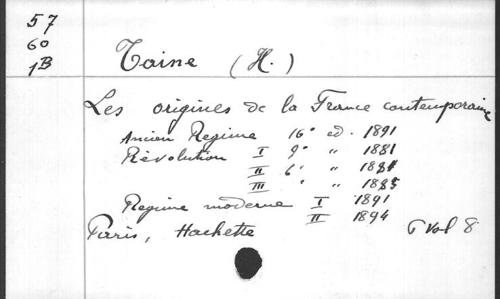 57
60
1B
Taine (H.)
Les origines de la France contemporaine
Ancien Regime 16° ed. 1891
Révolution I 9° " 1881
II 6° " 1881
III ° " 1885
Regime moderne I 1891
II 1894
Paris, Hachette 6 Vol 8